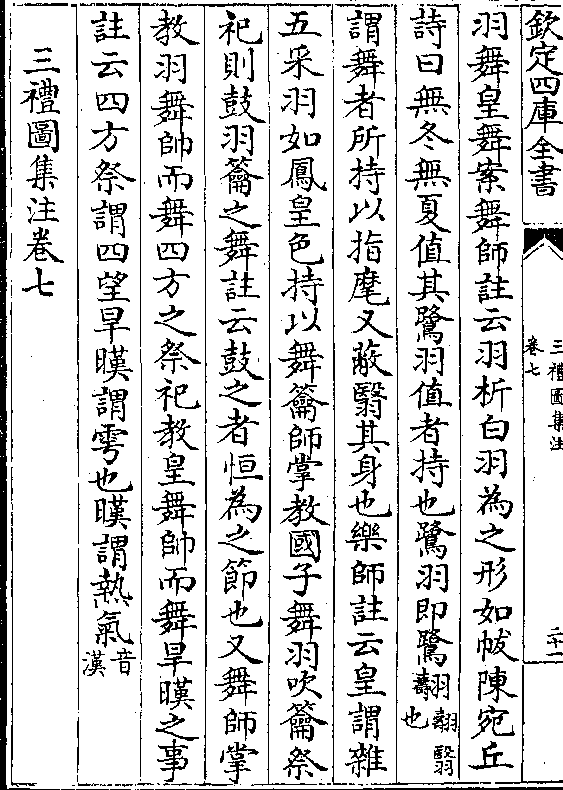 欽定四庫全書
三禮圖集注
卷七
二十一
羽舞皇舞案舞師註云羽析白羽為之形如帗陳宛丘
詩曰無冬無夏值其鷺羽值者持也鷺羽即鷺翿翳也
謂舞者所持以指麾又蔽翳其身也樂師註云皇謂雜
五采羽如鳳皇色持以舞籥師掌教國子舞羽吹籥祭
祀則鼓羽籥之舞註云鼓之者恒為之節也又舞師掌
教羽舞帥而舞四方之祭祀教皇舞帥而舞旱暵之事
註云四方祭謂四望旱暵謂雩也暵謂熱氣音漢
三禮圖集注卷七